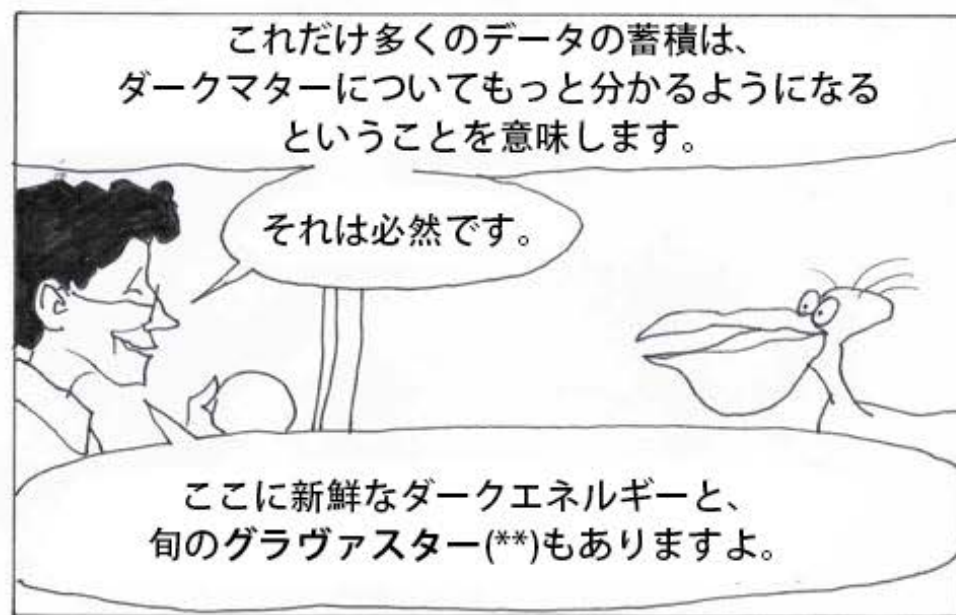 これだけ多くのデータの蓄積は、
ダークマターについてもっと分かるようになる
ということを意味します。
それは必然です。
ここに新鮮なダークエネルギーと、
旬のグラヴァスター(**)もありますよ。